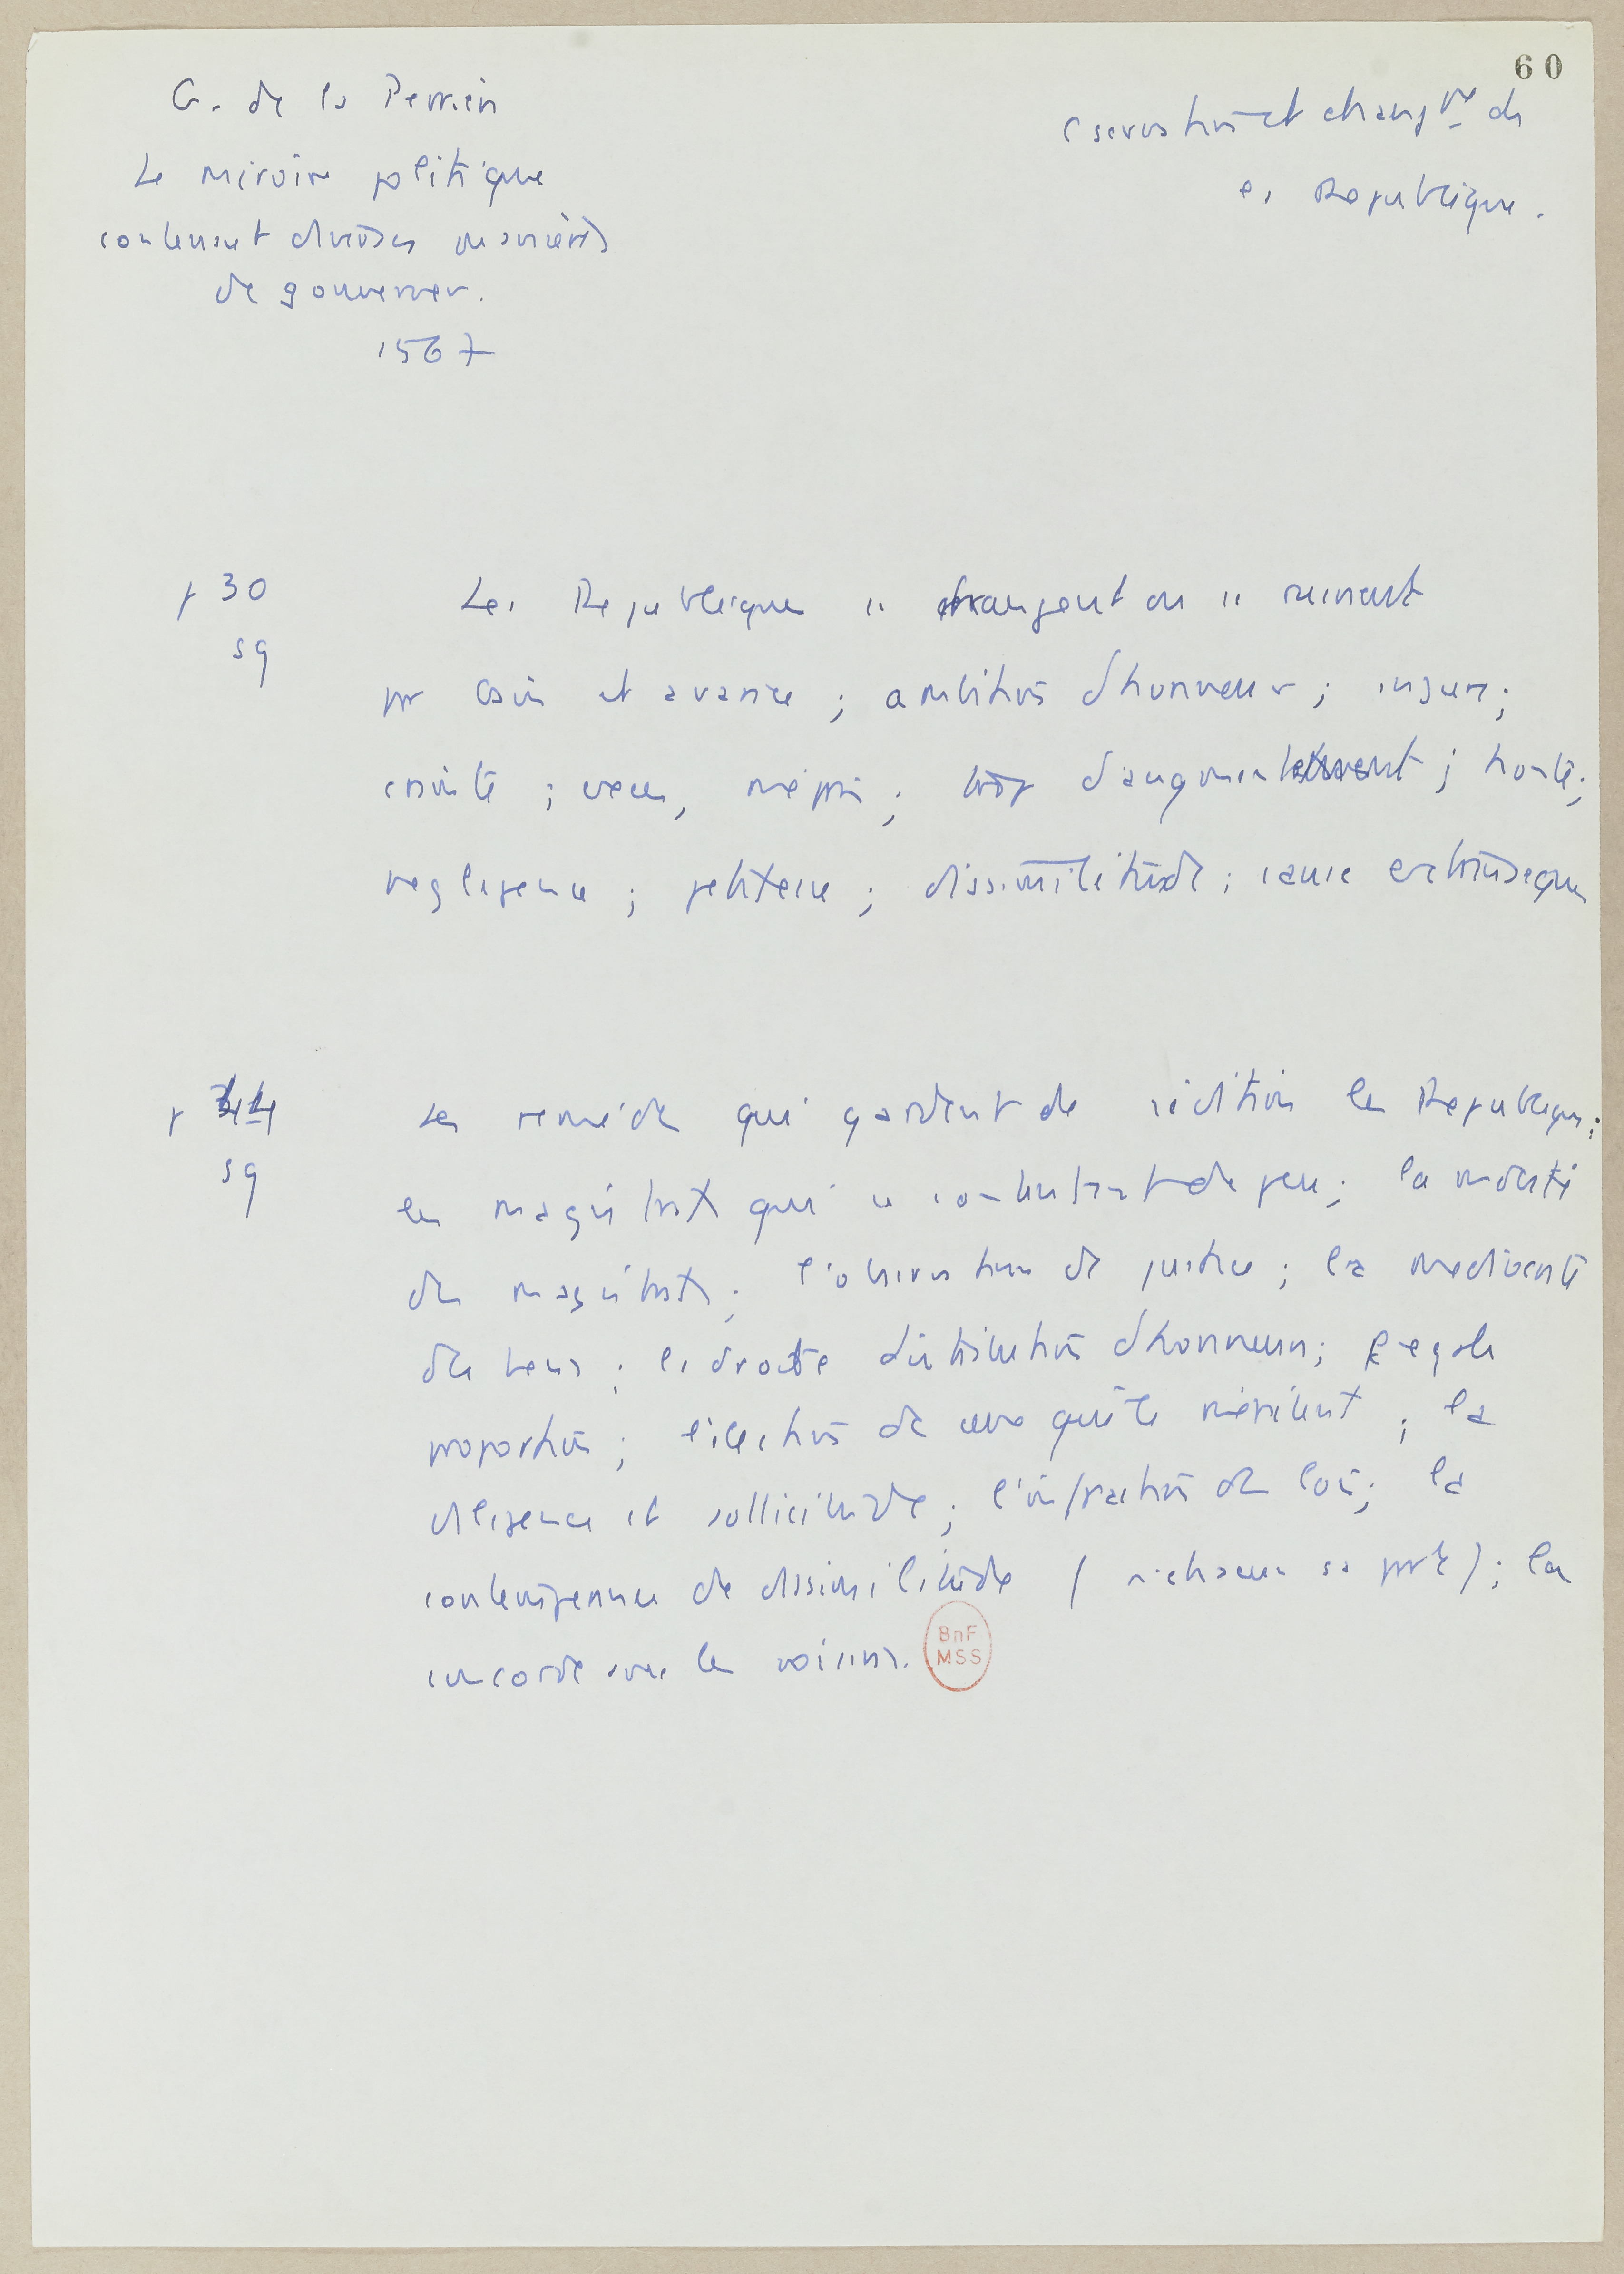 60
G. de la Perrière
Le miroire politique
contenant diverses manières
de gouverner.
1567
Conservation et changt de
la République.
p 30
sq
Les Republiques se changent ou se ruinent
par gain et avarice ; ambition d'honneur ; injure ;
crainte ; excès, mépris ; trop d'augmentement ; honte ;
negligence ; petitesse ; dissimilitude ; cause extrinseque
p 44
sq
Les remèdes qui gardent de sédition les Republiques :
les magistrats qui se contentent de peu ; la modestie
des magistrats ; l'observation de justice ; la mediocrité
des biens ; la droite distribution d'honneurs ; l'egale
proportion ; l'élection de ceux qui le méritent ; la
diligence et sollicitude ; l'infraction des lois ; la
de dissimilitude ( richesse ) ; la
concorde avec les voisins.
BnF
MSS